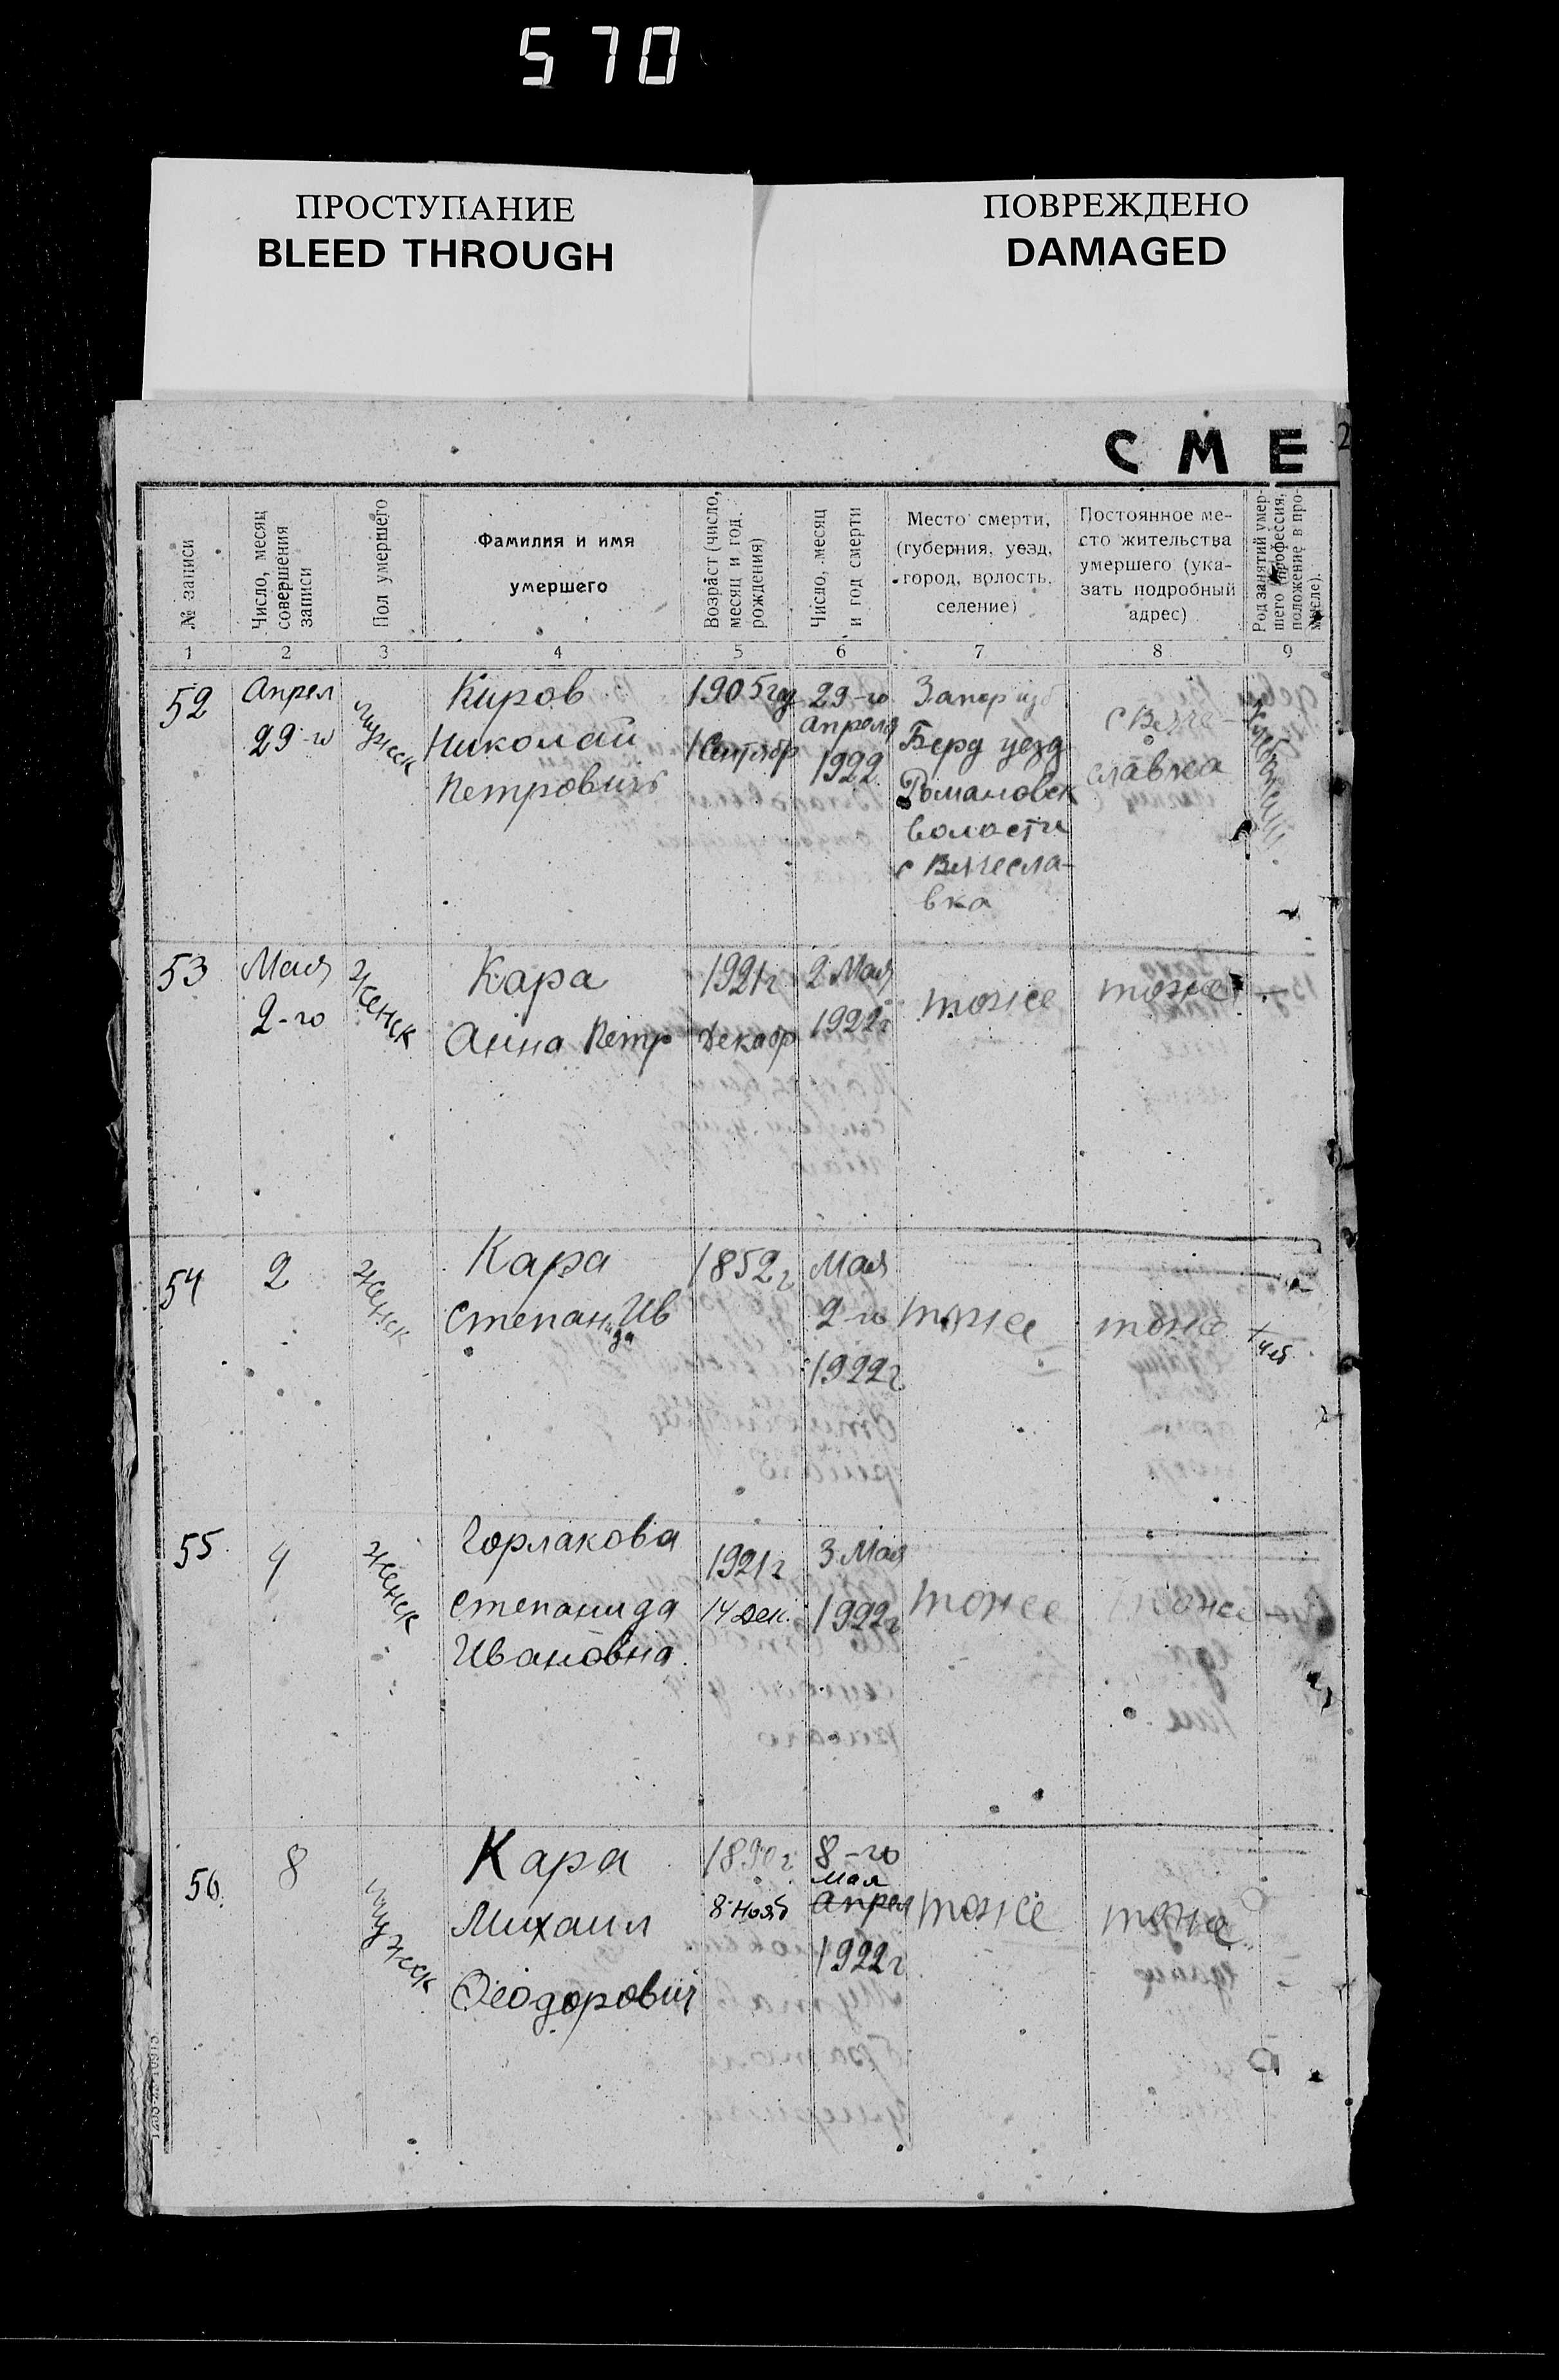 570
ПРОСТУПАНИЕ
BLEED THROUGH
ПОВРЕЖДЕНО
DAMAGED
СМЕ
2
№ записи
Число, месяц
совершения
записи
Пол умершего
Фамилия и имя
умершего
Возраст (число,
месяц и год.
рождения)
Число, месяц
и год смерти
Место смерти,
(губерния, уезд,
город, волость,
селение)
Постоянное ме-
сто жительства
умершего (ука-
зать подробный
адрес)
Род занятий умер-
шего (профессия,
положение в про-
мысле).
1 2 3 4 5 6 7 8 9
52
Апрел
29-го
мужеск
Киров
Николай
Петровичъ
1905 год
1 Сентябр
29-го
апреля
1922
Запор губ
Берд уезд
Романовск
волости
с Вячесла-
вка
с Вяче-
славка
Хлебопаш.
53
Мая
2-го
женск
Кара
Анна Петр
1921 г
Декабр
2 Мая
1922 г
тоже
тоже
-
54
2
женск
Кара
Степанида Ив
1852 г
Мая
2-го
1922 г
тоже
тоже
55.
4
женск
Горлакова
Степанида
Ивановна.
1921 г
14 Дек.
3 Мая
1922 г
тоже
тоже
56.
8
мужеск
Кара
Михаил
Феодорович
1890 г
8 Нояб
8-го
мая
Апрел
1922 г
тоже
тоже